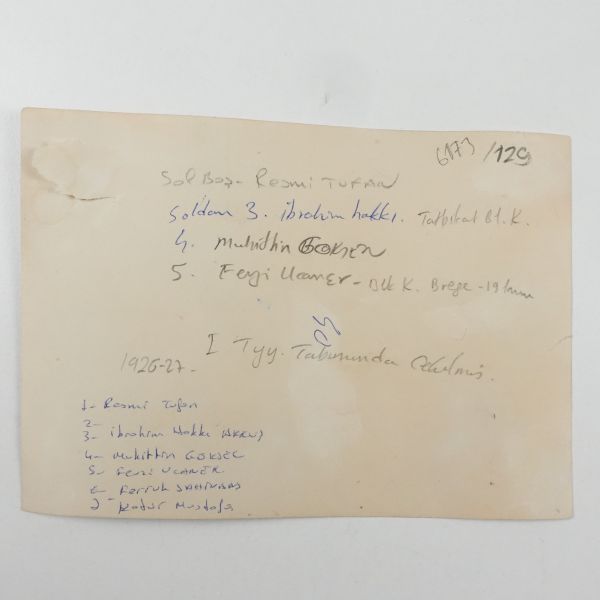 6173 /129
Sol Baş- Resmi TUFAN
Soldan 3. ibrahim hakkı. Tatbikat Bl. K.
4. Muhittin GÖKSEN
5. Fevzi Ucaner - Blk K. Brege - 19
I Tyy. Taburunda
1926-27-
1- Resmi Tufan
2-
3- ibrahim Hakkı
4- Muhittin GÖKSEL
5- Fevzi UCANER
6- Ferruh ŞAHİNBAŞ
7- Kadir Mustafa